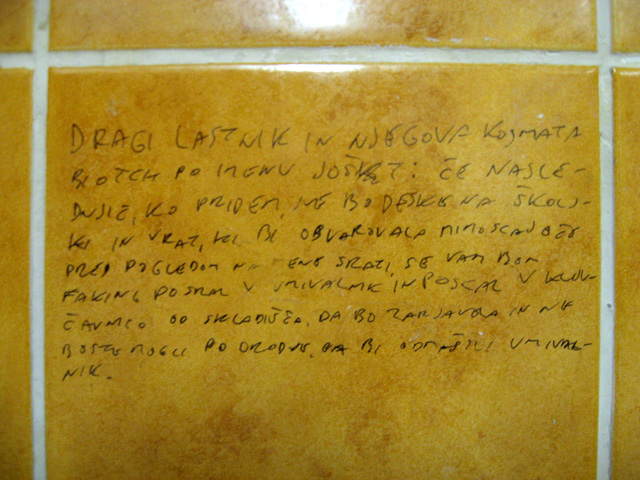 DRAGI LASTNIK IN NJEGOVA KOSMATA
BIOTCH PO IMENU JOŠKET: ČE NASLE-
DNJIČ, KO PRIDEM, NE BO DESKE NA ŠKOLJ-
KI IN VRAT, KI BI OBVAROVALA MIMOSCAJOČE
PRED POGLEDOM NA MENE SRATI, SE VAM BOM
FAKING POSRAL V UMIVALNIK IN POSCAL V KLJU-
ČAVNICO OD SKLADIŠČA, DA BO ZARJAVELA IN NE
BOSTE MOGLI PO ORODJE, DA BI ODMAŠILI UMIVAL-
NIK.